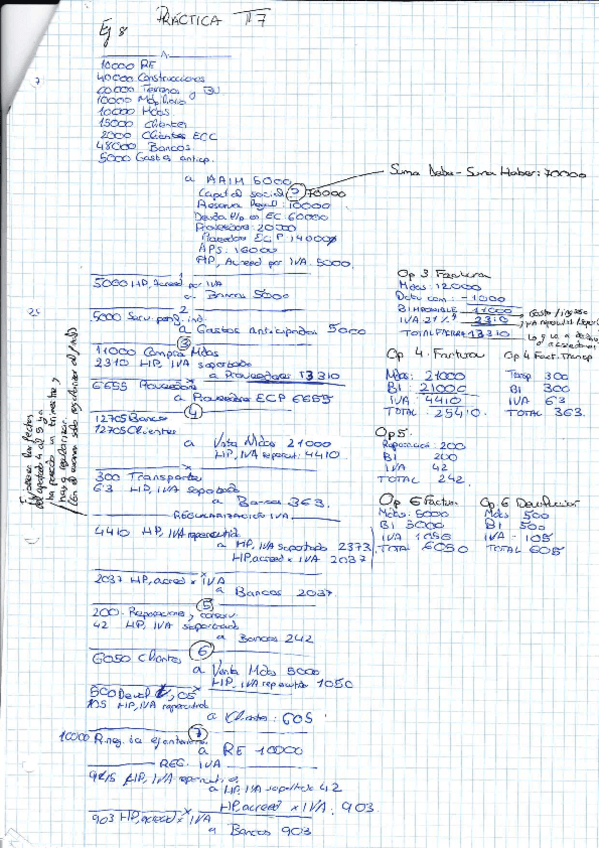 Ej 8
PRÁCTICA T7
10000 RE
40000 Construcciones
Terrenos y
10000 Mobiliario
10000 Mdas
15000 Clientes
2000 Clientes ECC
48000 Bancos
5000 Gastos anticip.
a AAIM 5000
Capital social ? 70000
Suma Debe - Suma Haber: 70000
Reserva legal: 10000
Deuda en EC 60000
Proveedores: 20000
Proveedores ECP 14000
APS: 16000
HP, Acreed por IVA: 5000
1
5000 HP, Acreed por IVA
a Bancos 5000
2
5000 Serv. ind.
a Gastos Anticipados 5000
3
11000 Compra Mdas
2310 HP, IVA soportado
a Proveedores 13310
6655 Proveedores
a Proveedores ECP 6655
4
12705 Bancos
12705 Clientes
a Venta Mdas 21000
HP, IVA repercut: 4410
300 Transportes
63 HP, IVA soportado
Bancos 363.
REGULARIZACIÓN IVA
4410 HP, IVA repercutido
a HP, IVA soportado 2373
HP, acreed x IVA 2037
2037 HP, acreed x IVA
a Bancos 2037
5
200 Reparaciones y conserv
42 HP, IVA soportado
a Bancos 242
6
6050 Clientes
a Venta Mdas 5000
HP, IVA repercutido 1050
500 Devol
105 HP, IVA repercutido
a Clientes: 605
7
10000
a RE 10000
REG. IVA
945 HP, IVA repercutido
a HP, IVA soportado 42
HP, acreed x IVA. 903
903 HP, acreed x IVA
a Bancos 903
Op 3 Factura
Mdas: 12000
Dcto com: -1000
BI IMPONIBLE 11000
IVA 21% 2310
TOTAL FACTURA 13310
Op 4. Factura
Mdas: 21000
BI: 21000
IVA: 4410
TOTAL: 25410.
Op 4 Fact. Transp
Transp 300
BI 300
IVA 63
TOTAL 363.
Op 5.
Reparación: 200
BI 200
IVA 42
TOTAL 242.
Op 6 Factura
Mdas: 5000
BI 5000
IVA 1050
TOTAL 6050
Op 6 Devolución
Mdas 500
BI 500
IVA - 105
TOTAL 605